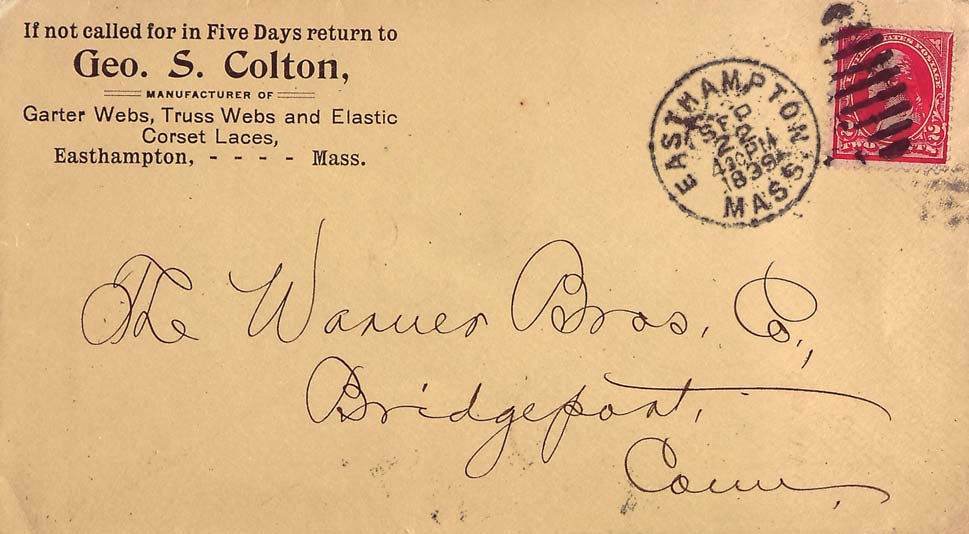 If not called for in Five Days return to
Geo. S. Colton,
MANUFACTURER OF
Garter Webs, Truss Webs and Elastic
Corset Laces,
Easthampton, - - - - Mass.
EASTHAMPTON
SEP
MASS.
The Warner Bros. Co.,
Bridgeport,
Conn,